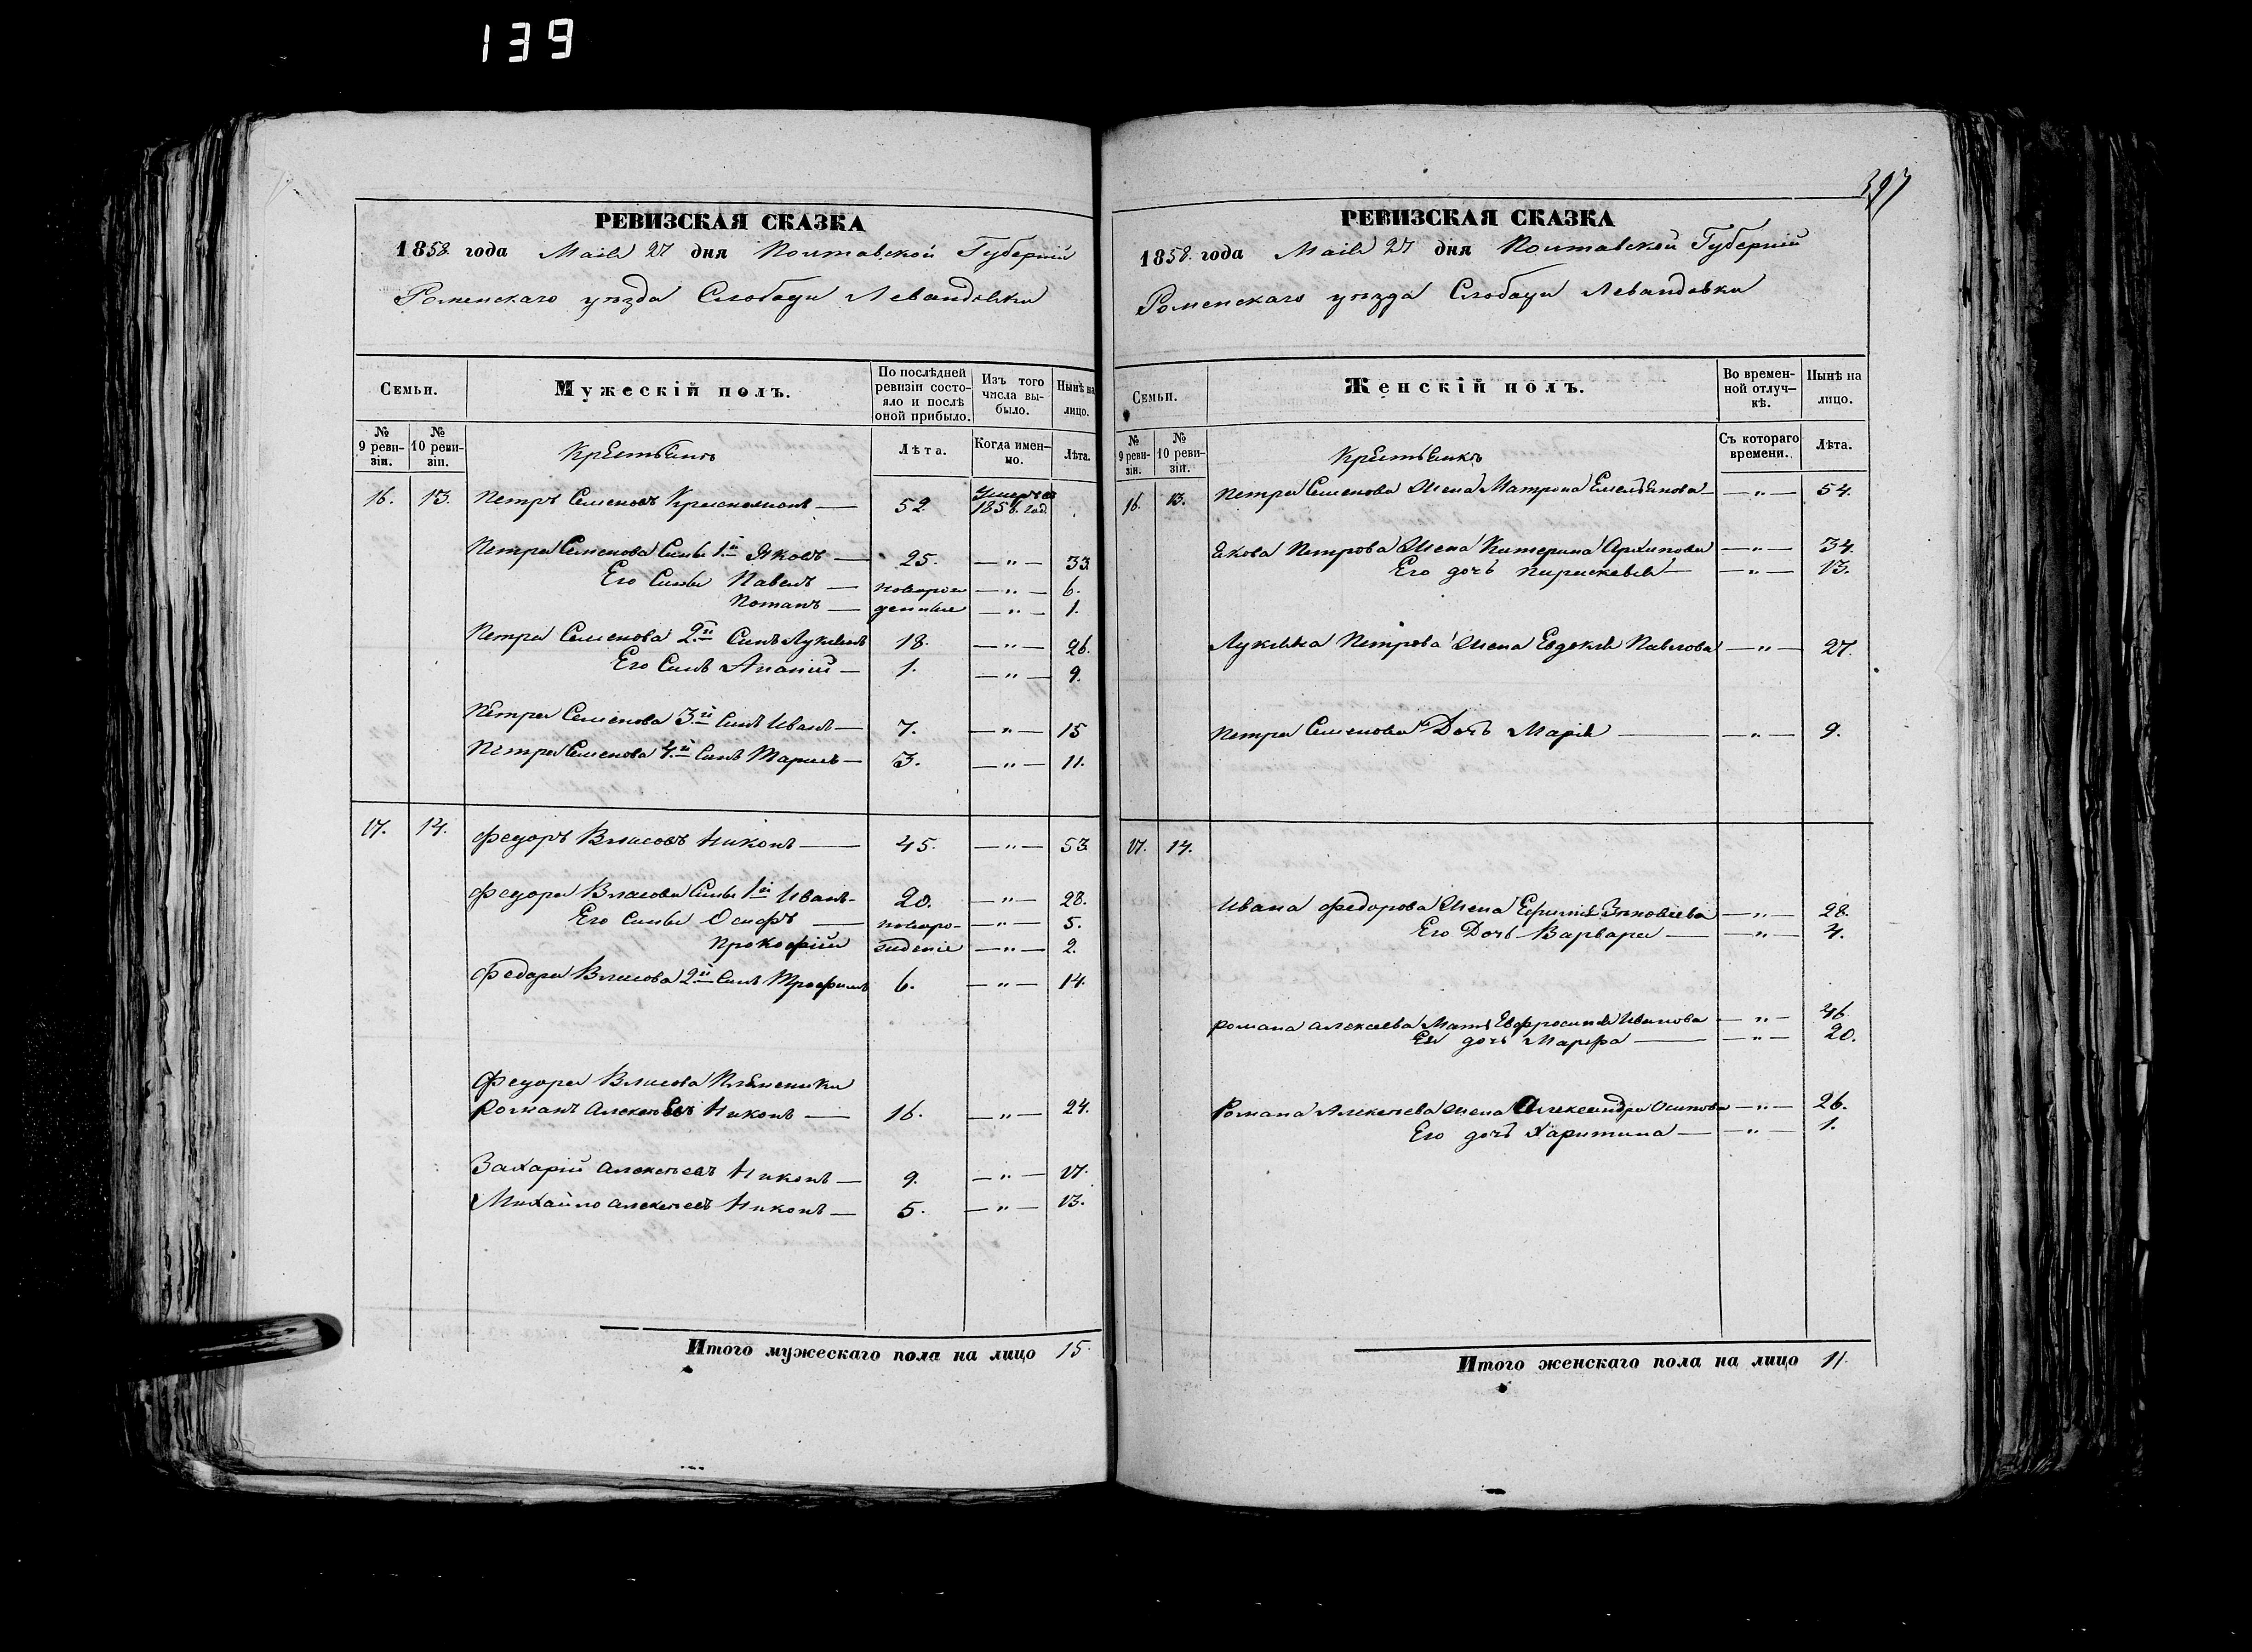 139
397
РЕВИЗСКАЯ СКАЗКА
1858 года Маія 27 дня Полтавской Губерніи
Роменскаго уѣзда Слободи Левандовки
Семьи.
Мужескій полъ.
По послѣдней ревизіи состояло и послѣ оной прибыло.
Изъ того числа выбыло.
Нынѣ на лицо.
№ 9 ревизіи.
№ 10 ревизіи.
Крестьянъ
Лѣта.
Когда именно.
Лѣта.
16. 13. Петръ Семеновъ 52. Умеръ въ 1858. год.
Петра Семенова Сыны 1й Яковъ — 25. — „ — 33
Его Сины Павелъ — новорож — „ — 6.
Потапъ — денные — „ — 1.
Петра Семенова 2й Синъ Лукіянъ 18. — „ — 26.
Его Синъ Ананій — 1. — „ — 9.
Петра Семенова 3й Синъ Иванъ — 7. — „ — 15
Петра Семенова 4й Синъ Тарасъ — 3. — „ — 11.
17. 14. Федоръ Власовъ Никонъ — 45. — „ — 53
Федора Власова Сины 1й Иванъ - 20. — „ — 28.
Его Сины Осифъ — новоро- — „ — 5.
Прокофій жденіе — „ — 2.
Федора Власова 2й Синъ Трофимъ 6. — „ — 14.
Федора Власова Племеники
Романъ Алексѣевъ Никонъ — 16. — „ — 24.
Захарій Алексѣевъ Никонъ — 9. — „ — 17.
Михайло Алексѣевъ Никонъ — 5. — „ — 13.
Итого мужескаго пола на лицо 15.
РЕВИЗСКАЯ СКАЗКА
1858. года Маія 27 дня Полтавской Губерніи
Роменскаго уѣзда Слободи Левандовки
Семьи.
Женскій полъ.
Во временной отлучкѣ.
Нынѣ на лицо.
№ 9 ревизіи.
№ 10 ревизіи.
Крестьянкъ
Съ котораго времени.
Лѣта.
16. 13. Петра Семенова Жена Матрона Емельянова — „ — 54.
Якова Петрова Жена Катерина Архипова — „ — 34.
Его дочь Параскевія — „ — 13.
Лукіяна Петрова Жена Евдокія Павлова — „ — 27.
Петра Семенова Дочь Марія — „ — 9.
17. 14.
Ивана Федорова Жена Ефимія Зиновіева — „ — 28.
Его Дочь Варвара — „ — 4.
Романа Алексѣева Мать Евфросинія Иванова — „ — 46.
Ея дочь Марфа — „ — 20.
Романа Алексѣева Жена Александра Осипова — „ — 26.
Его дочь Харитина — „ — 1.
Итого женскаго пола на лицо 11.